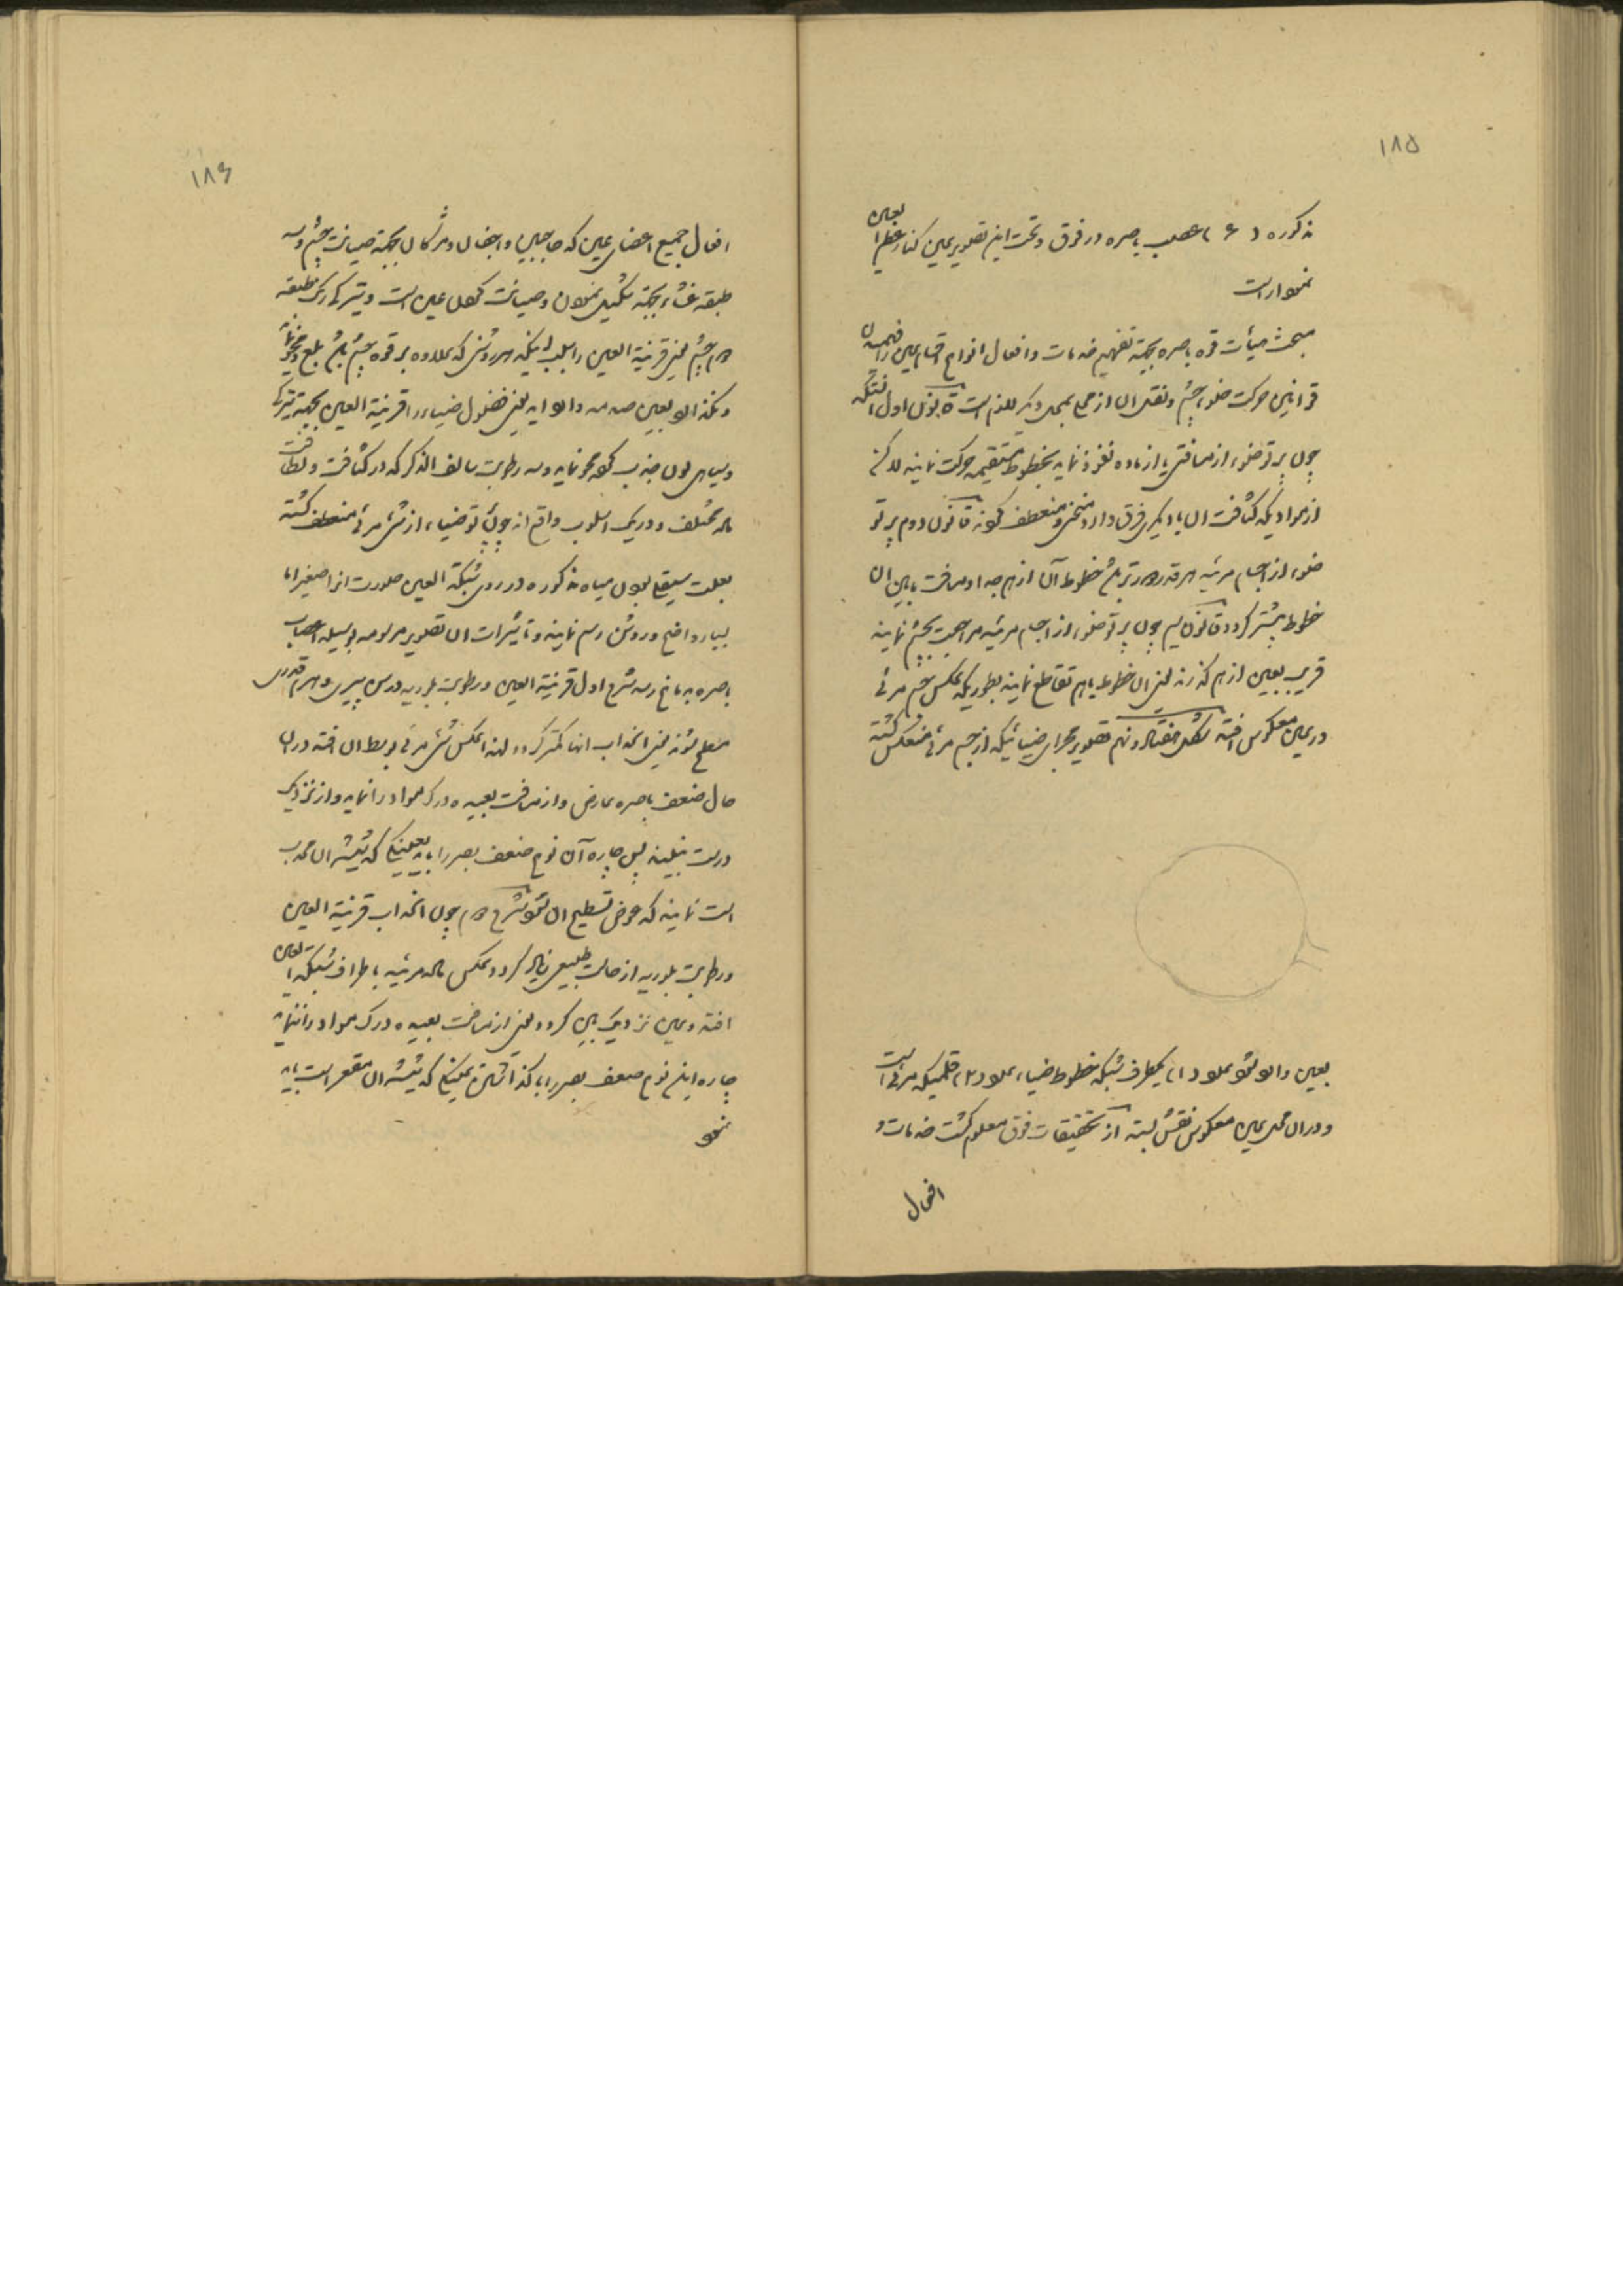 ۱۸۵
مذکوره (۶) عصب باصره در فوق و تحت این تصویر عین کنار عظم العین
نمودار است
مبحث هیأت قوه باصره بجهة تفهیم خدمات و افعال انواع اقسام عین را فهمیدن
قوانین حرکت ضوء چشم و نقل ان از محلی بمحل دیگر لازم است قانون اول انستکه
چون پرتو ضوء از مسافتی یا از ماده نفوذ نماید بخطوط مستقیمه حرکت نماید لاکن
از موادیکه کثافت ان با دیگری فرق دارد منحنی و منعطف گردد قانون دوم پرتو
ضوء از اجسام مرئیه هر قدر دورتر باشد خطوط آن از هم جدا و مسافت مابین ان
خطوط بیشتر گردد قانون سیم چون پرتو ضوء از اجسام مرئیه مراجعت بچشم نمایند
قریب بعین از هم گذرند یعنی ان خطوط باهم تقاطع نمایند بطوریکه عکس جسم مرئی
در عین معکوس افتد شکل هفتاد و نهم تصویر مجرای ضیائیکه از جسم مرئی منعکس گشته
بعین داخل شود عدد (۱) یکطرف شبکه خطوط ضیاء عدد (۲) قلمیکه مرئی است
و در ان محل عین معکوس نقش بسته از تحقیقات فوق معلوم گشت خدمات و
افعال
۱۸۶
افعال جمیع اعضای عین که حاجبین و اجفان و مژگان بجهة صیانت چشم و سه
طبقه غشاء بجهة تشکیل نمودن و صیانت کحل عین است و تیرگی رنگ طبقه
دوم چشم یعنی قرنیة العین را بسبب اینکه هر روشنی که علاوه بر قوه چشم باشد بلع و محو نماید
و نگذارد بعین صدمه وارد اید یعنی فضول ضیاء را قرنیة العین بجهة تیرگی
و سیاهی لون جذب کرده محو نماید و سه رطوبت سالف الذکر که در کثافت و لطافت
مختلف و در یک اسلوب واقع اند چون پرتو ضیاء از شئ مرئی منعطف گشته
بعلت صیقلی بودن میاه مذکوره در روی شبکة العین صورت انرا صغیر اما
بسیار واضح و روشن رسم نماید و تأثیرات ان تصویر مرسومه بوسیله اعصاب
باصره بدماغ رسد شرح اول قرنیة العین و رطوبت بلوریه در سن پیری و هرم قدری
مسطح شوند یعنی انحداب انها کمتر گردد لهذا عکس شئ مرئی بوسط ان افتد در ان
حال ضعف باصره عارض و از مسافت بعیده درک مواد را نماید و از نزدیک
درست نبیند پس چاره آن نوع ضعف بصر را باید بعینکی که شیشه ان محدب
است نمایند که عوض تسطیح ان شود شرح دوم چون انحداب قرنیة العین
و رطوبت بلوریه از حالت طبیعی زیاد گردد عکس مواد مرئیه باطراف شبکة العین
افتد و عین نزدیک بین گردد یعنی از مسافت بعیده درک مواد را ننماید
چاره این نوع ضعف بصر را با گذاشتن عینکی که شیشه ان مقعر است باید
نمود